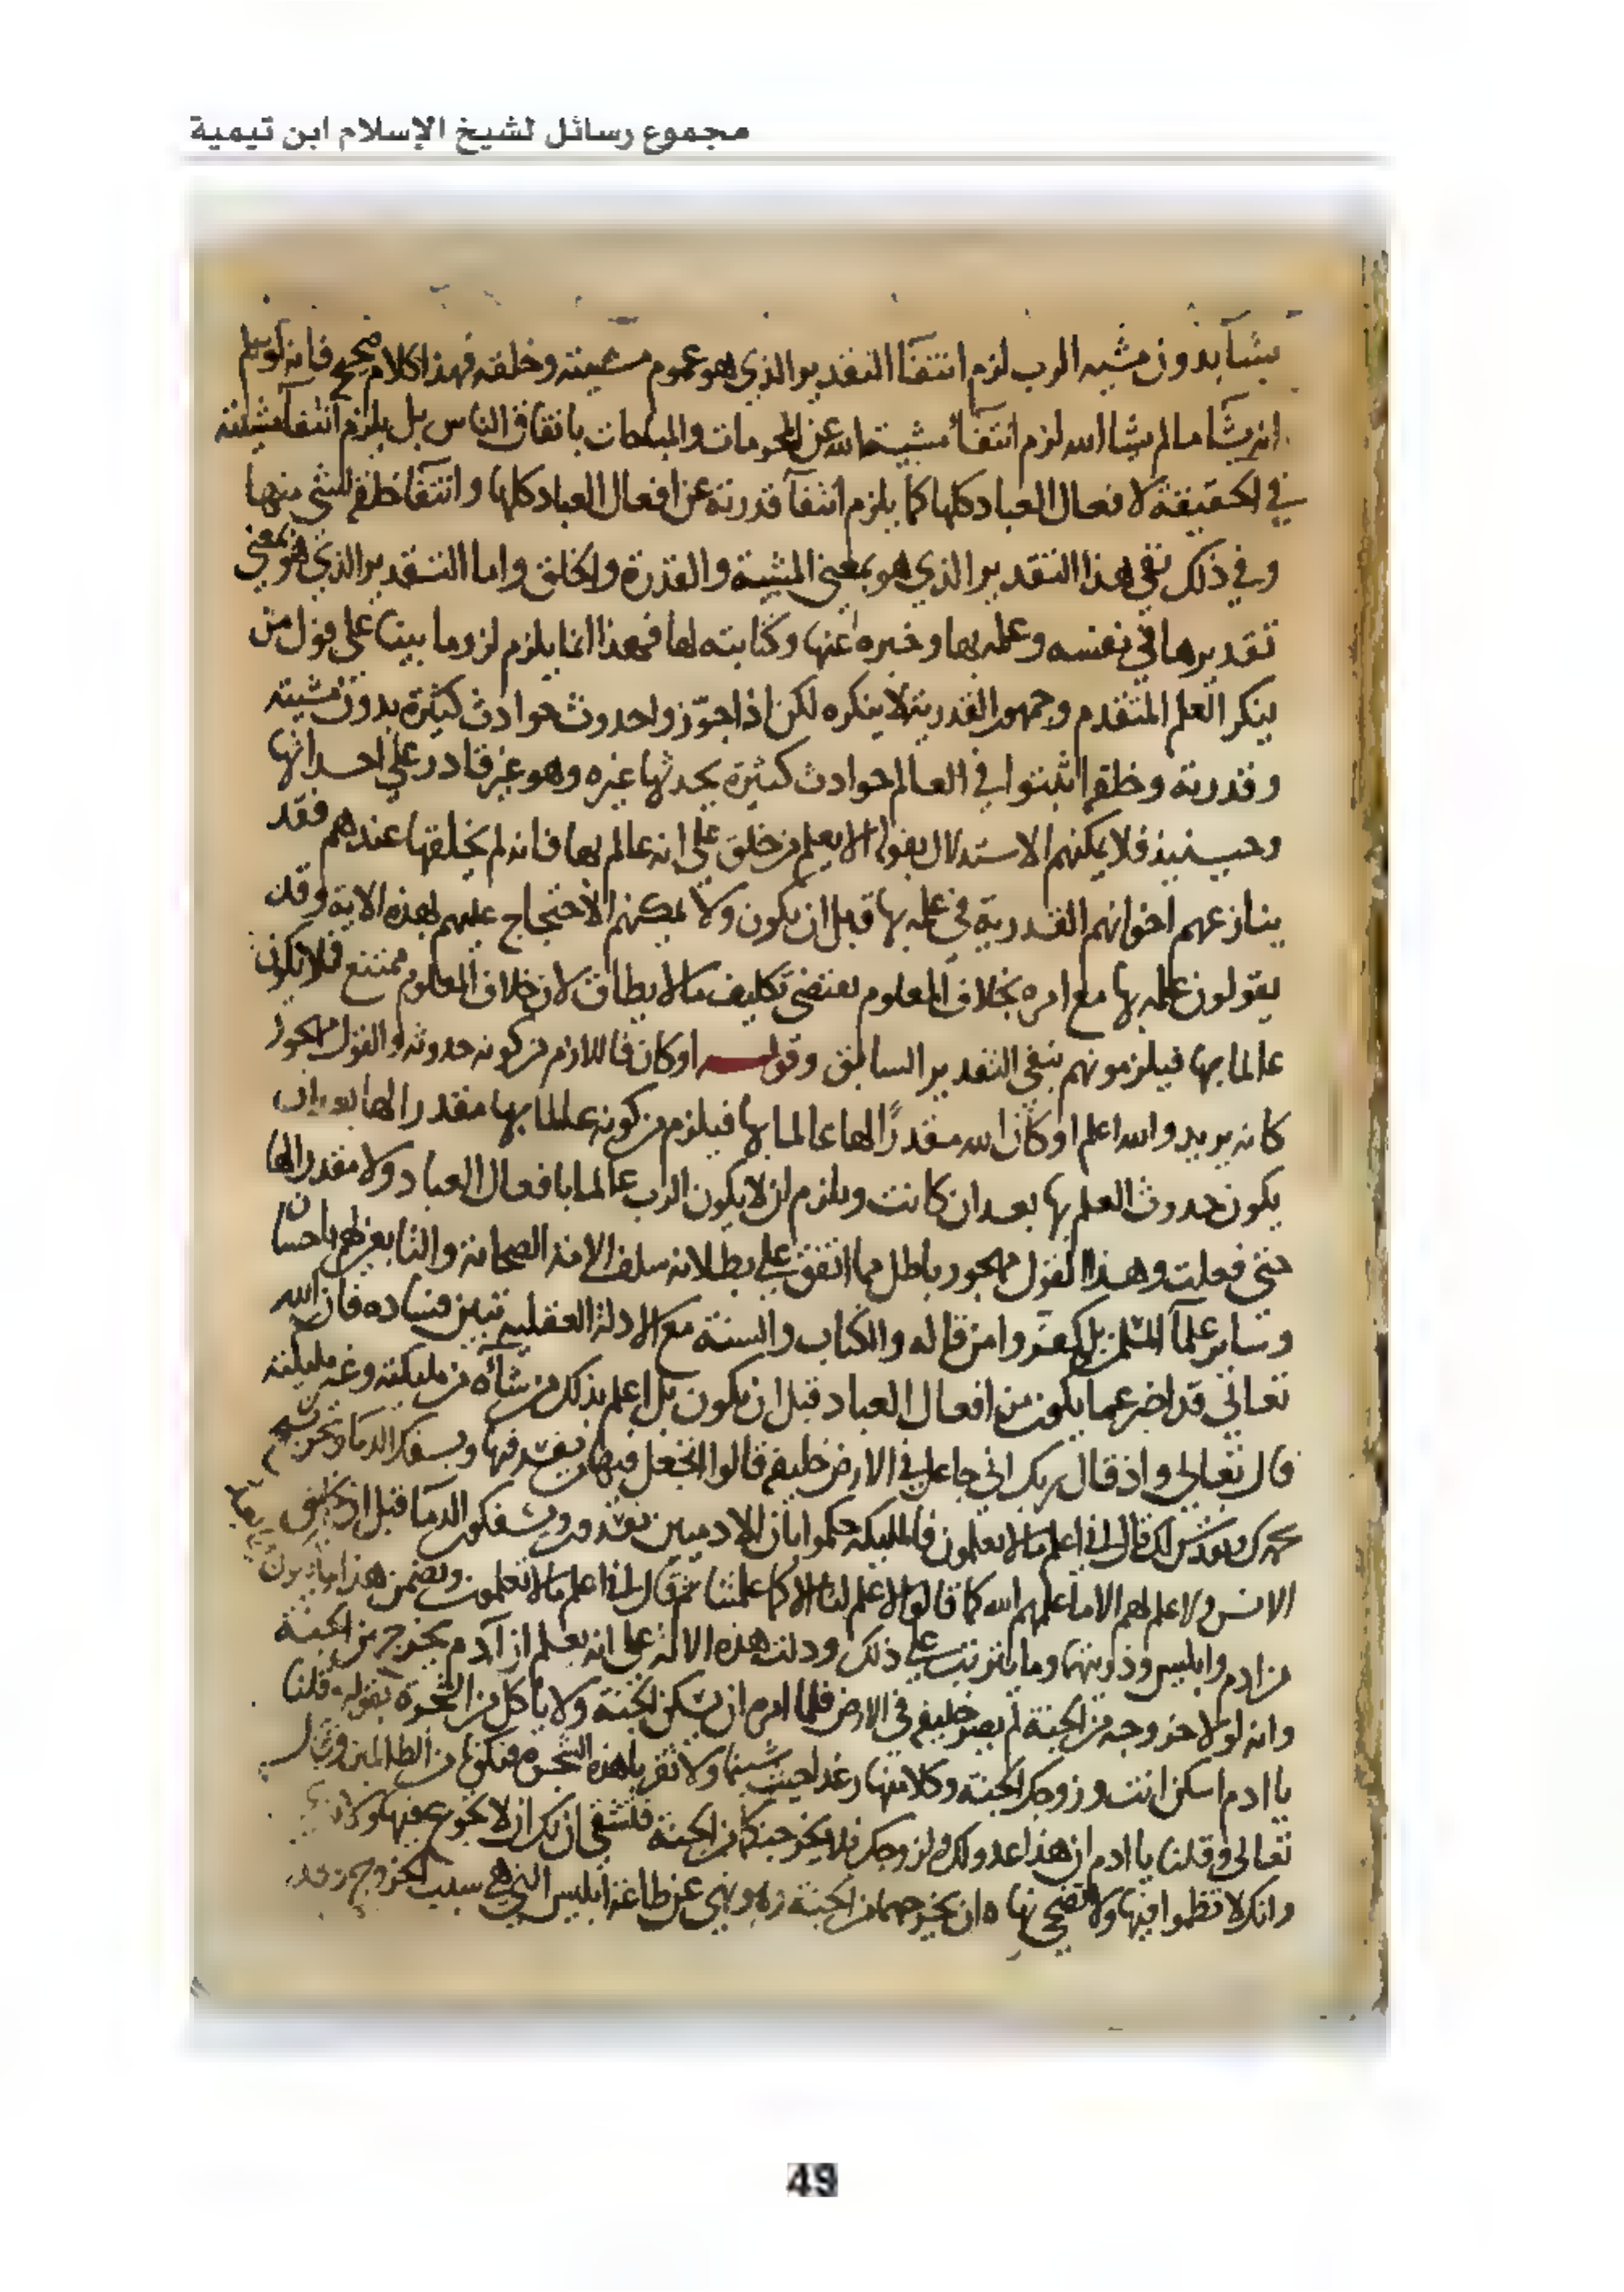 مجموع رسائل لشيخ الإسلام ابن تيمية
يشا بدون مشيه الرب لزم انتفا التقدير الذي هو عموم مشيته وخلقه فهذا كلام صحيح فانه لو
انه يشا ما لم يشا الله لزم انتفا مشية الله عن المحرمات والمباحات باتفاق الناس بل يلزم انتفا مشيئته
في الحقيقة لافعال العباد كلها كما يلزم انتفا قدرته عن افعال العباد كلها وانتفا خلقه لشي منها
وفي ذلك نفي هذا التقدير الذي هو بمعنى المشية والقدرة والخلق واما التقدير الذي هو بمعنى
تقديرها في نفسه وعلمه بها وخبره عنها وكتابته لها فهذا انما يلزم لزوما بينا على قول من
ينكر العلم المتقدم وجمهور القدرية لا ينكره لكن اذا جوزوا حدوث حوادث كثيرة بدون مشيته
وقدرته وخلقه اثبتوا في العالم حوادث كثيرة يحدثها غيره وهو غير قادر على احداثها
وحينيذ فلا يمكنهم الاستدلال بقوله الا يعلم من خلق على انه عالم بها فانه لم يخلقها عندهم فقد
ينازعهم اخوانهم القدرية في علمه بها قبل ان يكون ولا يمكنهم الاحتجاج عليهم بهذه الاية وقد
يقولون علمه بها مع امره بخلاف المعلوم يقتضي تكليف ما لا يطاق لان خلاف المعلوم ممتنع فلا يكون
عالما بها فيلزمونهم بنفي التقدير السابق وقوله او كان فاللازم من كونه حدوثه والقول مهجور
كانه يريد والله اعلم او كان الله مقدرًا لها عالما بها فيلزم من كونه عالما بها مقدرا لها بعد ان
يكون حدوث العلم بها بعد ان كانت ويلزم ان لا يكون الرب عالما بافعال العباد ولا مقدرا لها
حتى فعلت وهذا القول مهجور باطل مما اتفق على بطلانه سلف الامة الصحابة والتابعين لهم باحسان
وساير علما المسلمين بل كفروا من قاله والكتاب والسنة مع الادلة العقلية تبين فساده فان الله
تعالى قد اخبر عما يكون من افعال العباد قبل ان يكون بل اعلم بذلك من شاه من مليكته وغير مليكته
قال تعالى واذ قال ربك اني جاعل في الارض خليفه قالوا اتجعل فيها من يفسد فيها ويسفك الدما ونحن نسبح
بحمدك ونقدس لك قال اني اعلم ما لا تعلمون فالمليكه حكموا بان الادميين يفسدون ويسفكون الدما قبل ان
الانس ولا علم لهم الا ما علمهم الله كما قالوا لا علم لنا الا ما علمتنا ثم قال اني اعلم ما لا تعلمون وتضمن هذا ما يكون
من ادم وابليس وذريتهما وما يترتب على ذلك ودلت هذه الاية على انه يعلم ان آدم يخرج من الجنة
وانه لولا خروجه من الجنة لم يصر خليفه في الارض فلما امره ان يسكن الجنة ولا ياكل من الشجرة بقوله قلنا
يا ادم اسكن انت وزوجك الجنة وكلا منها رغدا حيث شيتما ولا تقربا هذه الشجرة فتكونا من الظالمين وقال
تعالى وقلنا يا ادم ان هذا عدو لك ولزوجك فلا يخرجنكما من الجنة فتشقى ان لك ان لا تجوع فيها ولا
وانك لا تظموا فيها ولا تضحى نهاه ان يخرجهما من الجنة وهو نهي عن طاعة ابليس التي هي سبب الخروج وقد
49